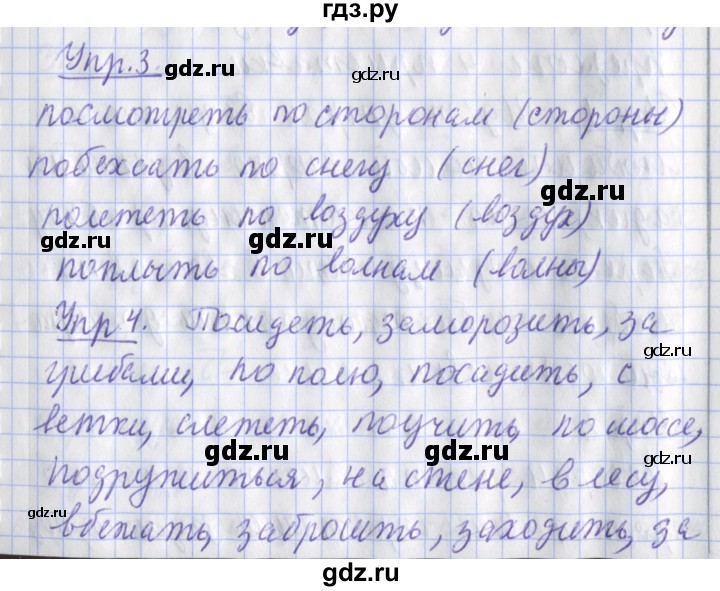 гдз.ру
Упр.3. gdz.ru gdz.ru
посмотреть по сторонам (стороны)
побежать по снегу (снег)
gdz.ru
полететь по воздуху (воздух)
gdz.ru gdz.ru
поплыть по волнам (волны)
Упр 4. Посидеть, заморозить, за
gdz.ru
грибами, по полю, посадить, с
ветки, слететь, поучить, по шоссе,
gdz.ru gdz.ru gdz.ru
подружиться, на стене, в лесу,
gdz.ru
вбежать, забросить, заходить, за
gdz.ru gdz.ru
gdz.ru